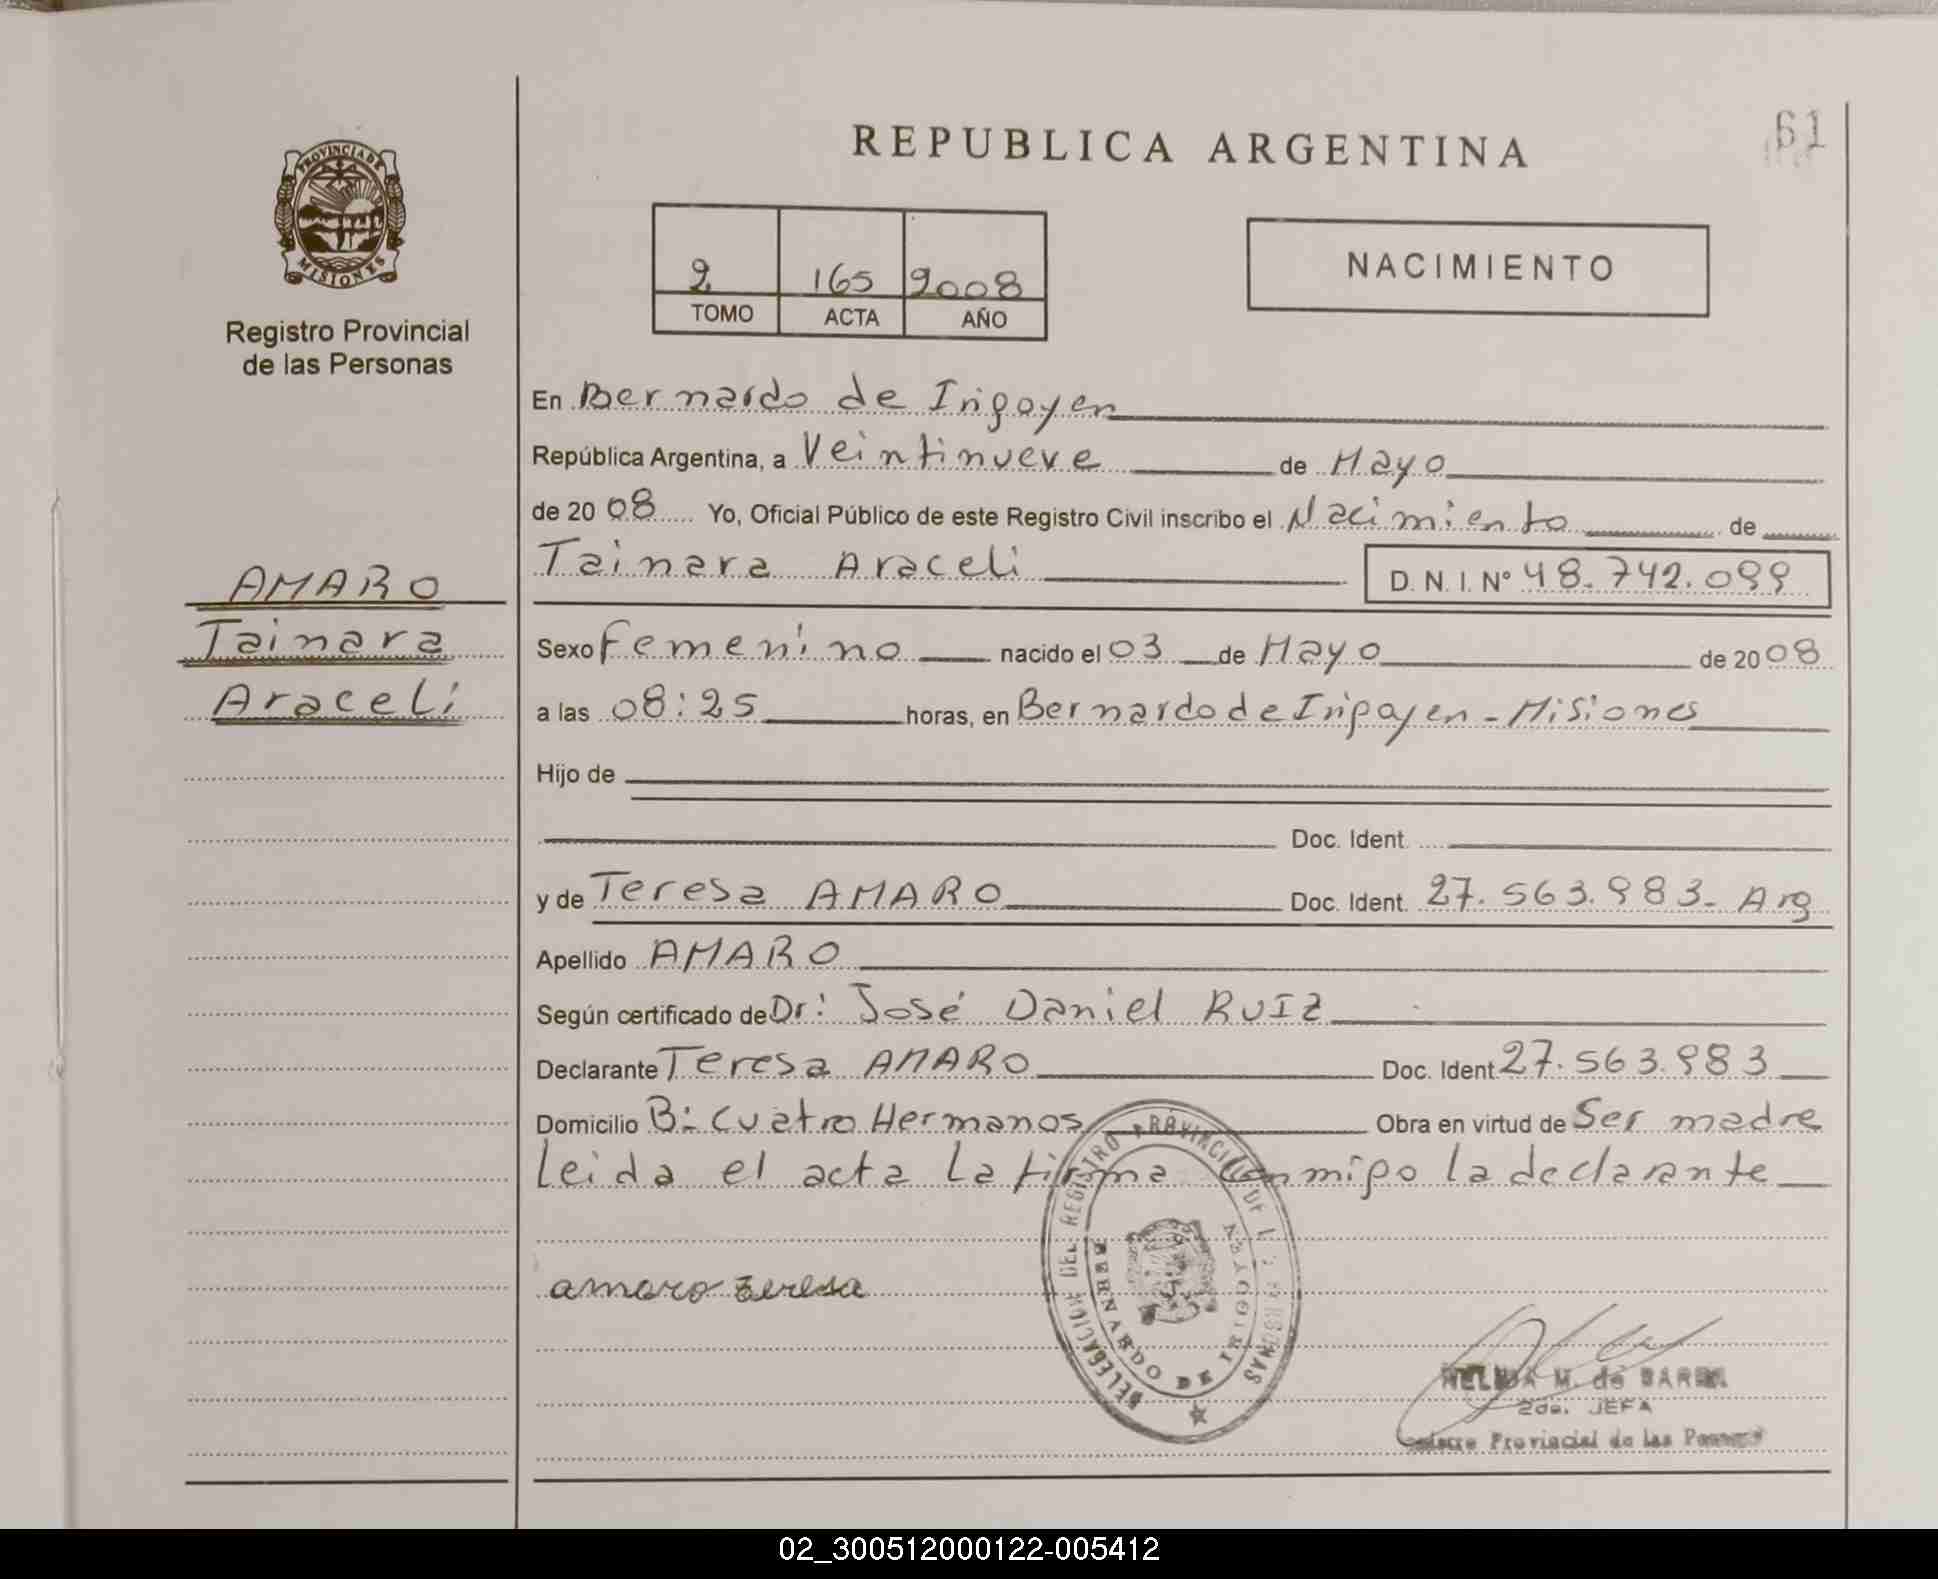 REPUBLICA ARGENTINA
61
PROVINCIA DE
MISIONES
Registro Provincial
de las Personas
2 165 2008
TOMO ACTA AÑO
NACIMIENTO
En Bernardo de Irigoyen
República Argentina, a Veintinueve de Mayo
de 20 08 Yo, Oficial Público de este Registro Civil inscribo el Nacimiento de
Tainara Araceli D. N. I. Nº 48.742.099
AMARO
Tainara
Araceli
Sexo Femenino nacido el 03 de Mayo de 20 08
a las 08:25 horas, en Bernardo de Irigoyen - Misiones
Hijo de
Doc. Ident.
y de Teresa AMARO Doc. Ident. 27.563.983- Arg
Apellido AMARO
Según certificado de Dr: José Daniel RUIZ
Declarante Teresa AMARO Doc. Ident 27.563.983
Domicilio B: Cuatro Hermanos Obra en virtud de Ser madre
Leida el acta la firma conmigo la declarante
amaro teresa
DELEGACION DEL REGISTRO PROVINCIAL DE LAS PERSONAS
BERNARDO DE IRIGOYEN
M. de
2da. JEFA
Registro Provincial de las Personas
02_300512000122-005412